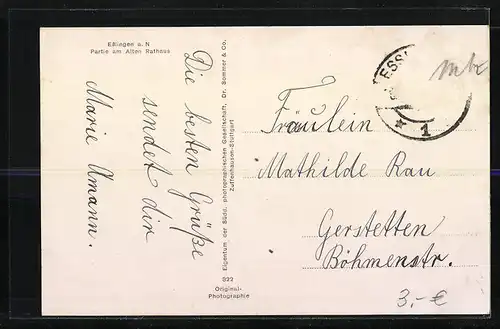 Eßlingen a. N
Partie am Alten Rathaus
Die besten Grüße
sendet dir
Marie Amann.
Eigentum der Südd. photographischen Gesellschaft, Dr. Sommer & Co.
Zuffenhausen-Stuttgart
922
Original-
Photographie
ESSL
* 1
Fräulein
Mathilde Rau
Gerstetten
Böhmenstr.
3.-€